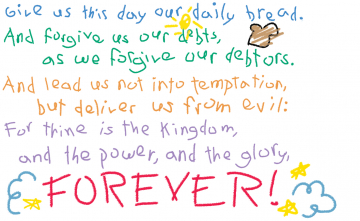 Give us this day our daily bread.
And forgive us our debts,
as we forgive our debtors.
And lead us not into temptation,
but deliver us from evil:
For thine is the Kingdom,
and the power, and the glory,
FOREVER!